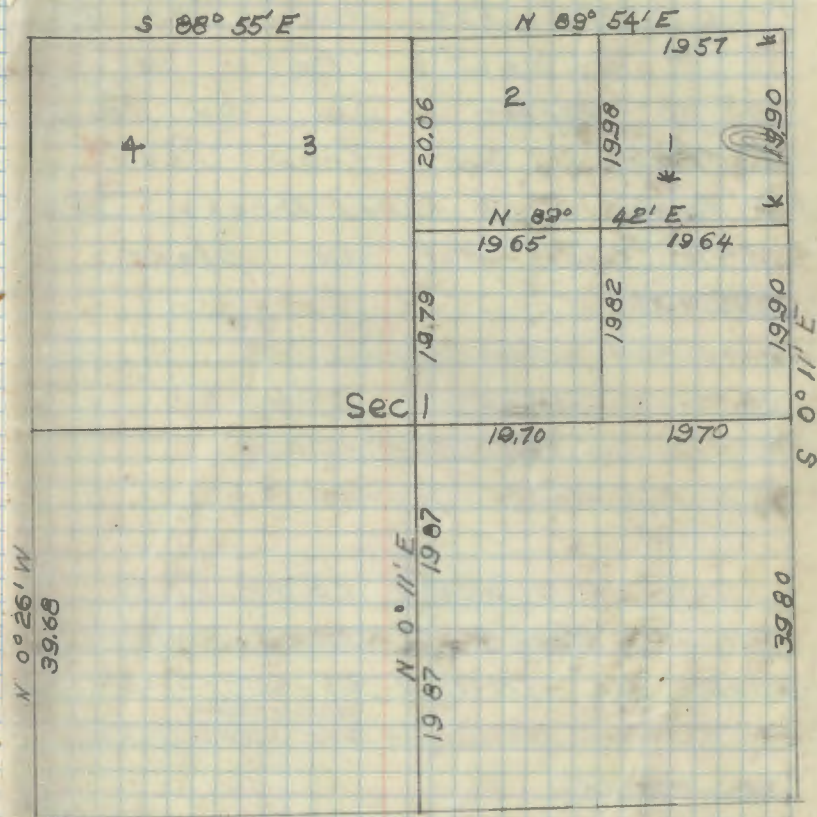 S 88° 55' E
N 89° 54' E
1957
4
3
20.06
2
1998
1
19.90
N 89° 42' E
1965
1964
19.79
1982
19.90
S 0° 11' E
Sec 1
19.70
1970
N 0° 26' W
39.68
N 0° 11' E
19 87
19 87
39 80